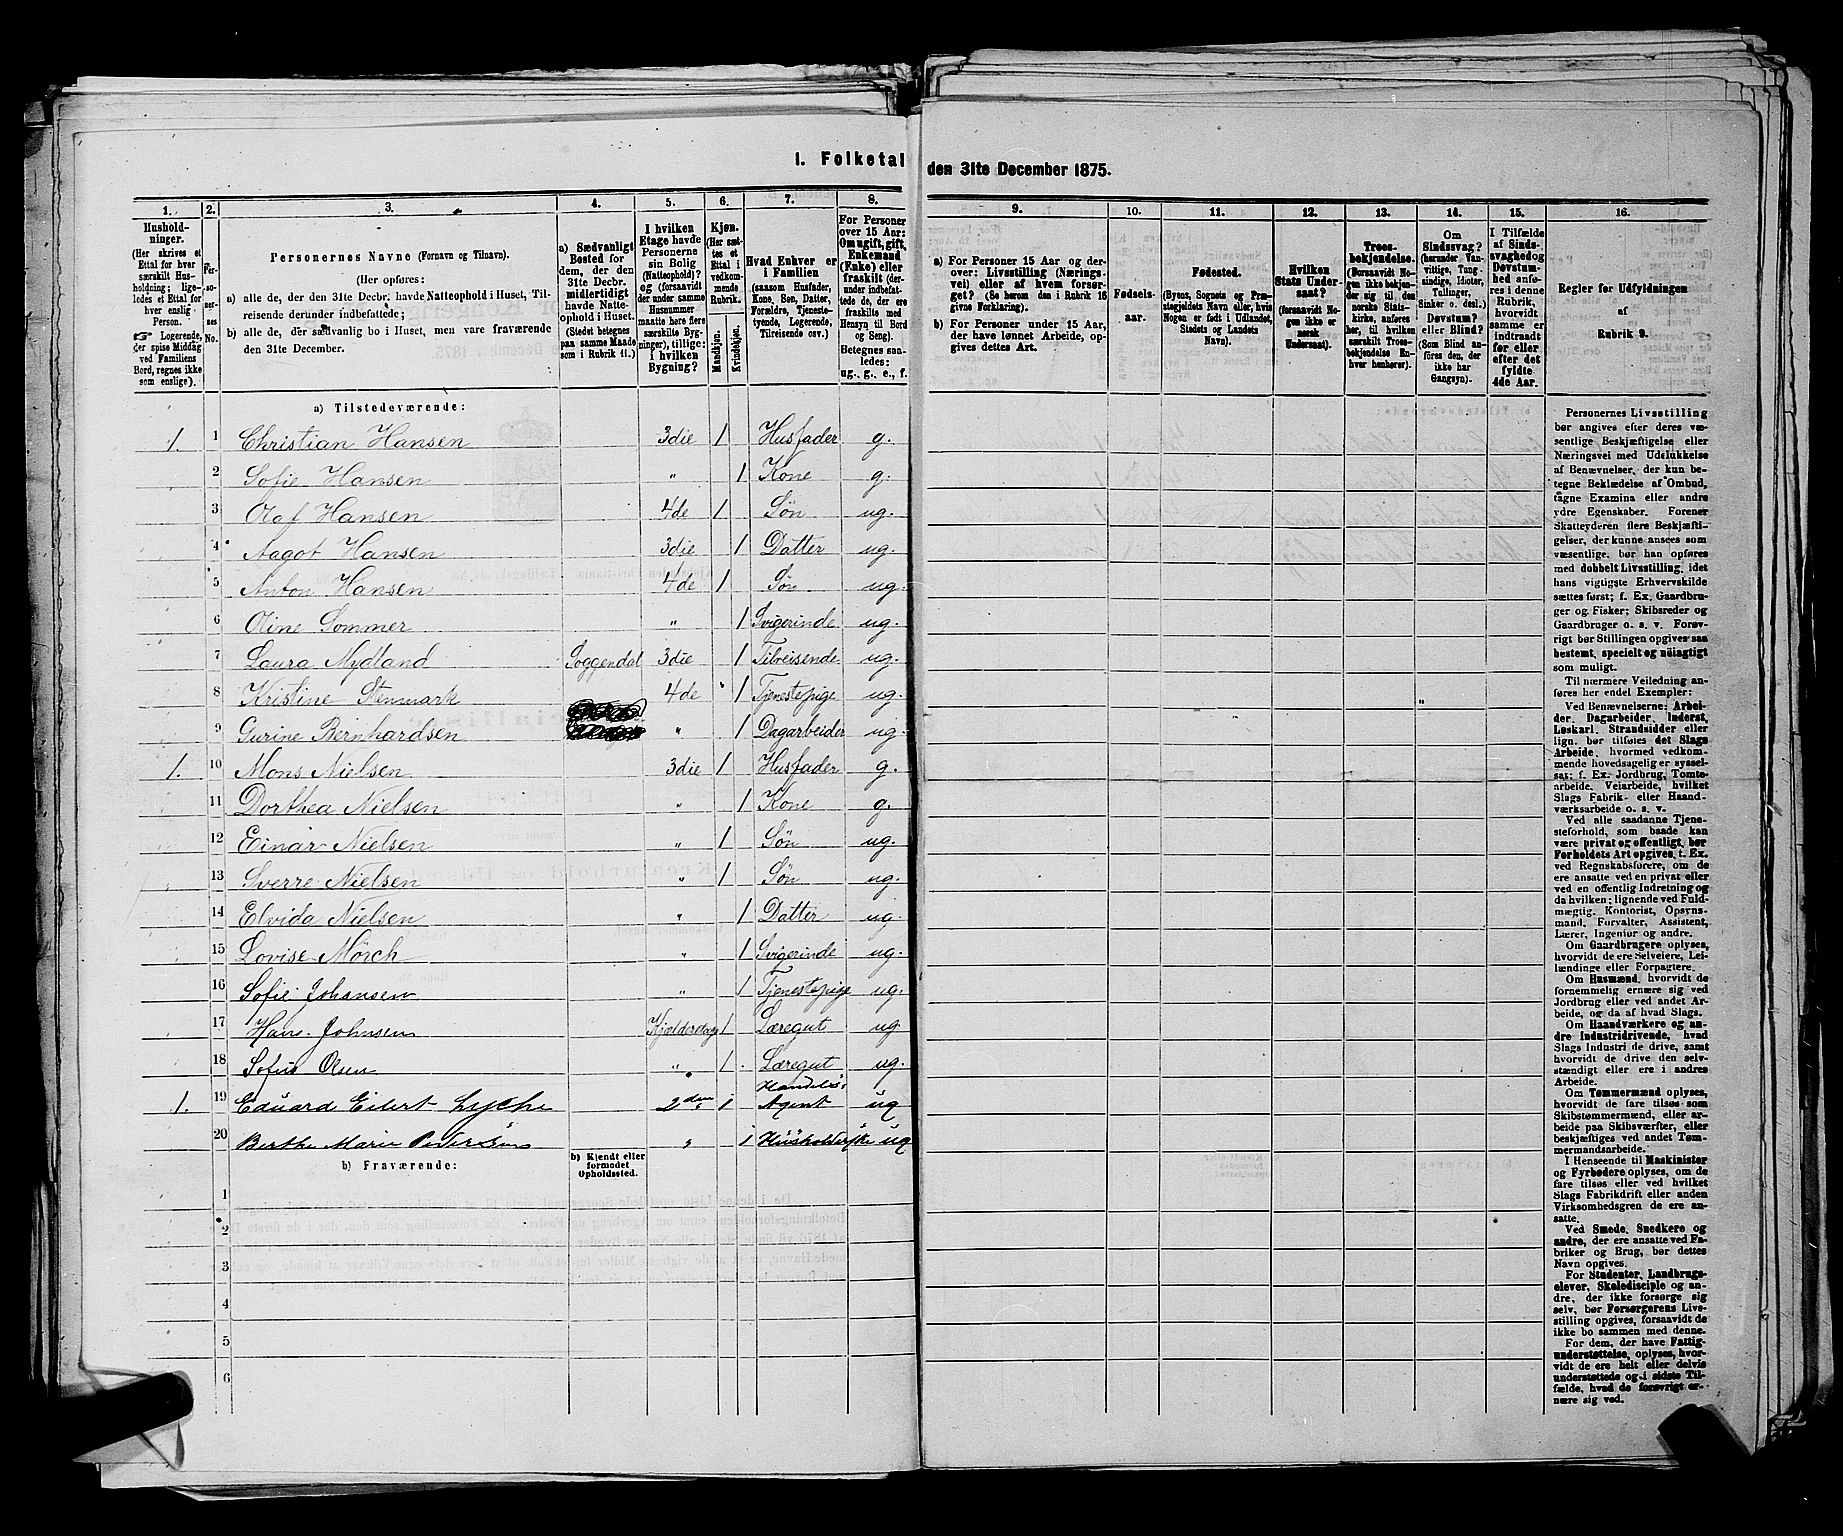 1. Folketal den 31te December 1875.
1. 2. 3. 4. 5. 6. 7. 8. 9. 10. 11. 12. 13. 14. 15. 16.
Hushold-
ninger.
(Her skrives et
Ettal for hver
særskilt Hus-
holdning; lige-
ledes et Ettal for
hver enslig
Person.
☞ Logerende,
der spise Middag
ved Familiens
Bord, regnes ikke
som enslige).
Per-
so-
ner-
nes
No.
Personernes Navne (Fornavn og Tilnavn).
(Her opføres:
a) alle de, der den 31te Decbr. havde Natteophold i Huset, Til-
reisende derunder indbefattede;
b) alle de, der sædvanlig bo i Huset, men vare fraværende
den 31te December.
a) Sædvanligt
Bosted for
dem, der den
31te Decbr.
midlertidigt
havde Natte-
ophold i Huset.
(Stedet betegnes
paa samme Maade
som i Rubrik 11.)
I hvilken
Etage havde
Personerne
sin Bolig
(Natteophold)?
og (forsaavidt
der under samme
Husnummer
maatte høre flere
særskilte Byg-
ninger), tillige:
i hvilken
Bygning?
Kjøn.
(Her sæt-
tes et
Ettal i
vedkom-
mende
Rubrik.
Mandkjøn.
Kvindekjøn.
Hvad Enhver er
i Familien
(saasom Husfader,
Kone, Søn, Datter,
Forældre, Tjeneste-
tyende, Logerende,
Tilreisende osv.)
For Personer
over 15 Aar:
Om ugift, gift,
Enkemand
(Enke) eller
fraskilt (der-
under indbefat-
tede de, der ere
fraskilte med
Hensyn til Bord
og Seng).
Betegnes saa-
ledes:
ug., g., e., f.
a) For Personer 15 Aar og der-
over: Livsstilling (Nærings-
vei) eller af hvem forsør-
get? (Se herom den i Rubrik 16
givne Forklaring).
b) For Personer under 15 Aar,
der have lønnet Arbeide, op-
gives dettes Art.
Fødsels-
aar.
Fødested.
(Byens, Sognets og Præ-
stegjeldets Navn eller, hvis
Nogen er født i Udlandet,
Stedets og Landets
Navn).
Hvilken
Stats Under-
saat?
(forsaavidt No-
gen ikke er
norsk
Undersaat).
Troes-
bekjendelse.
(Forsaavidt No-
gen ikke bekjen-
der sig til den
norske Stats-
kirke, anføres
her, til hvilken
særskilt Troes-
bekjendelse En-
hver henhører).
Om
Sindssvag?
(herunder Van-
vittige, Tung-
sindige, Idioter,
Tullinger,
Sinker o. desl.)
Døvstum?
eller Blind?
(Som Blind an-
føres den, der
ikke har
Gangsyn).
I Tilfælde
af Sinds-
svaghed og
Døvstum-
hed anfø-
res i denne
Rubrik,
hvorvidt
samme er
indtraadt
før eller
efter det
fyldte
4de Aar.
Regler for Udfyldningen
af
Rubrik 9.
a) Tilstedeværende:
1. 1 Christian Hansen 3die 1 Husfader g.
2 Sofie Hansen " 1 Kone g.
3 Olaf Hansen 4de 1 Søn ug.
4 Aagot Hansen 3die 1 Datter ug.
5 Anton Hansen 4de 1 Søn ug.
6 Oline Sommer " 1 Svigerinde ug.
7 Laura Nydland Soggendal 3die 1 Tilreisende ug.
8 Kristine Stenmark 4de 1 Tjenestepige ug.
9 Gurine Bernhardsen " 1 Dagarbeider ug.
1. 10 Mons Nielsen 3die 1 Husfader g.
11 Dorthea Nielsen " 1 Kone g.
12 Einar Nielsen " 1 Søn ug.
13 Sverre Nielsen " 1 Søn ug.
14 Elvida Nielsen " 1 Datter ug.
15 Lovise Mörch " 1 Svigerinde ug.
16 Sofie Johansen " 1 Tjenestepige ug.
17 Hans Johnsen 1 Læregut ug
18 Sofus Olsen " 1 Læregut ug.
1. 19 Eduard Eilert Lyche 2den 1 Handels Agent ug
20 Berthe Marie Pedersen " 1 Husholderske ug
b) Fraværende:
b) Kjendt eller
formodet
Opholdssted.
1
2
3
4
5
6
Personernes Livsstilling
bør angives efter deres væ-
sentlige Beskjæftigelse eller
Næringsvei med Udelukkelse
af Benævnelser, der kun be-
tegne Beklædelse af Ombud,
tagne Examina eller andre
ydre Egenskaber. Forener
Skatteyderen flere Beskjæfti-
gelser, der kunne ansees som
væsentlige, bør han opføres
med dobbelt Livsstilling, idet
hans vigtigste Erhvervskilde
sættes først; f. Ex. Gaardbru-
ger og Fisker; Skibsreder og
Gaardbruger o. s. v. Forøv-
rigt bør Stillingen opgives saa
bestemt, specielt og nøiagtigt
som muligt.
Til nærmere Veiledning an-
føres her endel Exempler:
Ved Benævnelserne: Arbei-
der, Dagarbeider, Inderst,
Løskarl, Strandsidder eller
lign. bør tilføies det Slags
Arbeide, hvormed vedkom-
mende hovedsagelig er syssel-
sat; f. Ex. Jordbrug, Tomte-
arbeide, Veiarbeide, hvilket
Slags Fabrik- eller Haand-
værksarbeide o. s. v.
Ved alle saadanne Tjene-
steforhold, som baade kan
være privat og offentligt, bør
Forholdets Art opgives, t. Ex.
ved Regnskabsførere, om de
ere ansatte ved en privat eller
ved en offentlig Indretning og
da hvilken; lignende ved Fuld-
mægtig, Kontorist, Opsyns-
mand, Forvalter, Assistent,
Lærer, Ingeniør og andre.
Om Gaardbrugere oplyses,
hvorvidt de ere Selveiere, Lei-
lændinge eller Forpagtere.
Om Husmænd, hvorvidt de
fornemmelig ernære sig ved
Jordbrug eller ved andet Ar-
beide, og da af hvad Slags.
Om Haandværkere og an-
dre Industridrivende, hvad
Slags Industri de drive, samt
hvorvidt de drive den selv-
stændigt eller ere i andres
Arbeide.
Om Tømmermænd oplyses,
hvorvidt de fare tilsøs som
Skibstømmermænd, eller ar-
beide paa Skibsværfter, eller
beskjæftiges ved andet Tøm-
mermandsarbeide.
I Henseende til Maskinister
og Fyrbødere oplyses, om de
fare tilsøs eller ved hvilket
Slags Fabrikdrift eller anden
Virksomhedsgren de ere an-
satte.
Ved Smede, Snedkere og
andre, der ere ansatte ved Fa-
briker og Brug, bør dettes
Navn opgives.
For Studenter, Landbrugs-
elever, Skoledisciple og an-
dre, der ikke forsørge sig
selv, bør Forsørgerens Livs-
stilling opgives, forsaavidt de
ikke bo sammen med denne.
For dem, der have Fattig-
understøttelse, oplyses, hvor-
vidt de ere helt eller delvis
understøttede og i sidste Til-
fælde, hvad de forøvrigt er-
nære sig ved.